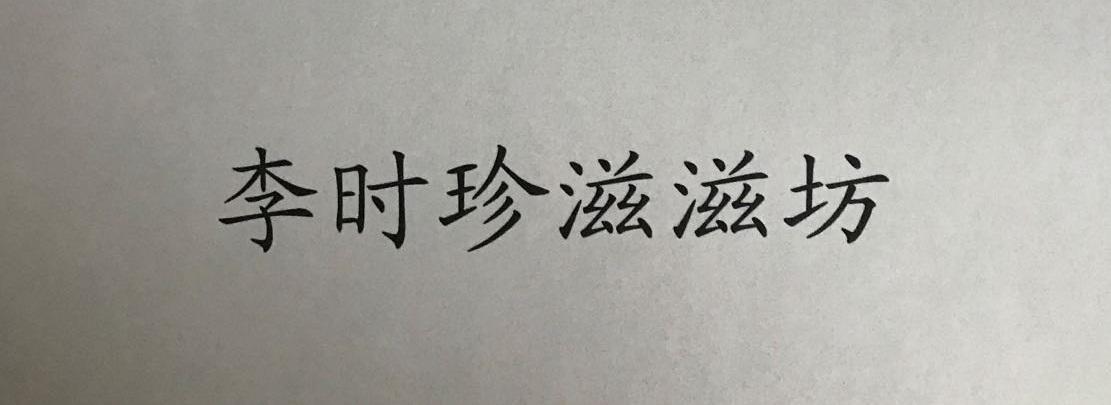 李时珍滋滋坊